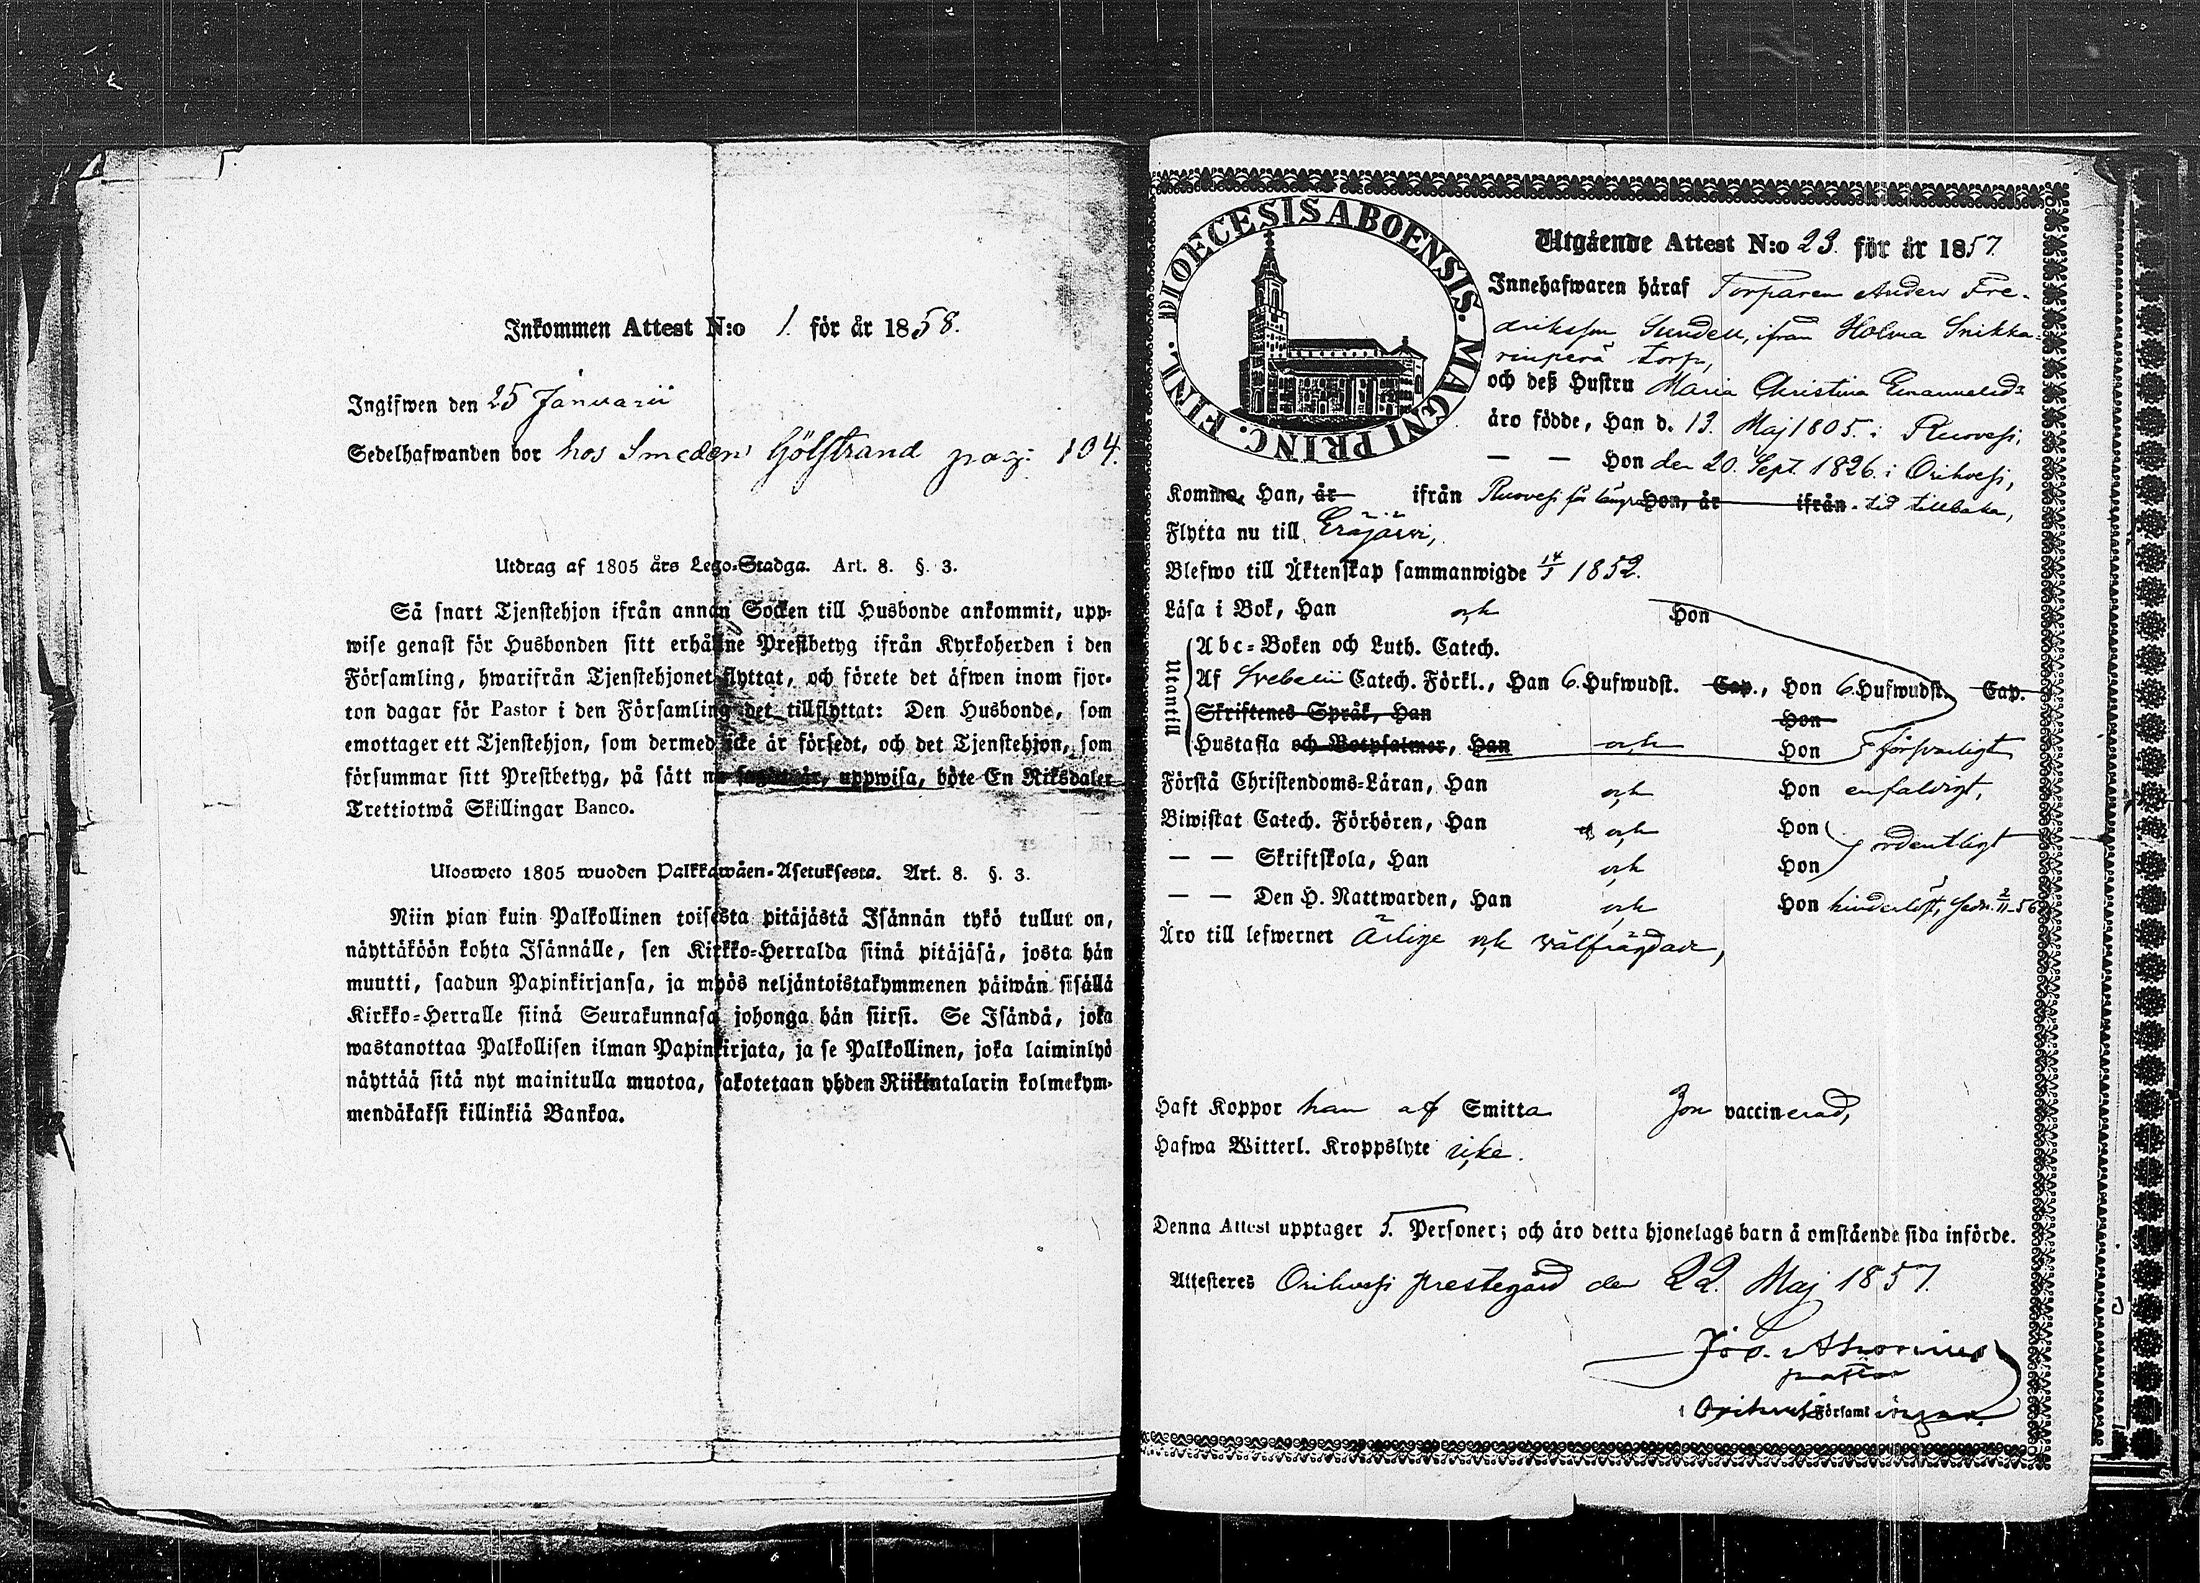 Inkommen Attest N:o 1. för år 1858.
Ingifwen den 25 Januarii
Sedelhafwanden bor hos Smeden Gölstrand pag: 104.
Utdrag af 1805 års Lego-Stadga. Art. 8. §. 3.
Så snart Tjenstehjon ifrån annan Socken till Husbonde ankommit, upp-
wise genast för Husbonden sitt erhållne Prestbetyg ifrån Kyrkoherden i den
Församling, hwarifrån Tjenstehjonet flyttat, och förete det äfwen inom fjor-
ton dagar för Pastor i den Församling det tillflyttat: Den Husbonde, som
emottager ett Tjenstehjon, som dermed icke är försedt, och det Tjenstehjon, som
försummar sitt Prestbetyg, på sätt nu sagdt är, uppwisa, böte En Riksdaler
Trettiotwå Skillingar Banco.
Ulosweto 1805 wuoden Palkkawäen-Asetuksesta. Art. 8. §. 3.
Niin pian kuin Palkollinen toisesta pitäjästä Isännän tykö tullut on,
näyttäköön kohta Isännälle, sen Kirkko-Herralda siinä pitäjäsä, josta hän
muutti, saadun Papinkirjansa, ja myös neljäntoistakymmenen päiwän sisällä
Kirkko-Herralle siinä Seurakunnasa johonga hän siirsi. Se Isändä, joka
wastanottaa Palkollisen ilman Papinkirjata, ja se Palkollinen, joka laiminlyö
näyttää sitä nyt mainitulla muotoa, sakotetaan yhden Riikintalarin kolmekym-
mendäkaksi killinkiä Bankoa.
DIOECESIS ABOENSIS. MAGNI PRINC. FINL.
Utgående Attest N:o 23. för år 1857.
Innehafwaren häraf Torparen Anders Fre-
driksson Sundell, ifrån Holma Snikka-
rinperä torp,
och deß Hustru Maria Christina Emanuelsdr
äro födde, Han d. 13. Maj 1805. i Ruovesi,
— — Hon den 20. Sept. 1826. i Orihvesi,
Komma, Han, år ifrån Ruovesi för längre Hon, år ifrån tid tillbaka,
Flytta nu till Eräjärvi,
Blefwo till Äktenskap sammanwigde 14/3 1852.
Läsa i Bok, Han och Hon
Utantill
Abc-Boken och Luth. Catech.
Af Svebelii Catech. Förkl., Han 6. Hufwudst. Cap., Hon 6. Hufwudst. Cap.
Skriftenes Språk, Han Hon
Hustafla och Botpsalmer, Han och Hon försvarligt
Förstå Christendoms-Läran, Han och Hon enfaldigt,
Biwistat Catech. Förhören, Han och Hon
ordentligt
— — Skriftskola, Han och Hon
— — Den H. Nattwarden, Han och Hon hinderlöst, sedn. 2/11 56
Äro till lefwernet ärlige och välfräjdade,
Haft Koppor han af Smitta Hon vaccinerad,
Hafwa Witterl. Kroppslyte icke.
Denna Attest upptager 5. Personer; och äro detta hjonelags barn å omstående sida införde.
Attesteres Orihvesi prestegård den 22. Maj 1857.
pastor
i Orihvesi Församlingar.